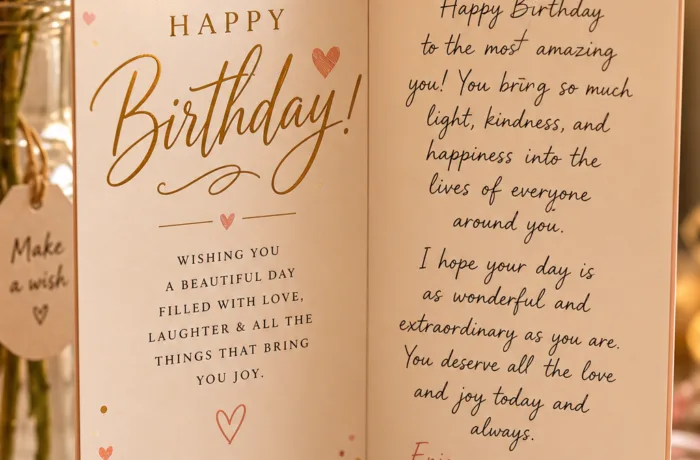 HAPPY
Birthday!
WISHING YOU
A BEAUTIFUL DAY
FILLED WITH LOVE,
LAUGHTER & ALL THE
THINGS THAT BRING
YOU JOY.
Happy Birthday
to the most amazing
you! You bring so much
light, kindness, and
happiness into the
lives of everyone
around you.
I hope your day is
as wonderful and
extraordinary as you are.
You deserve all the love
and joy today and
always.
Make
a wish